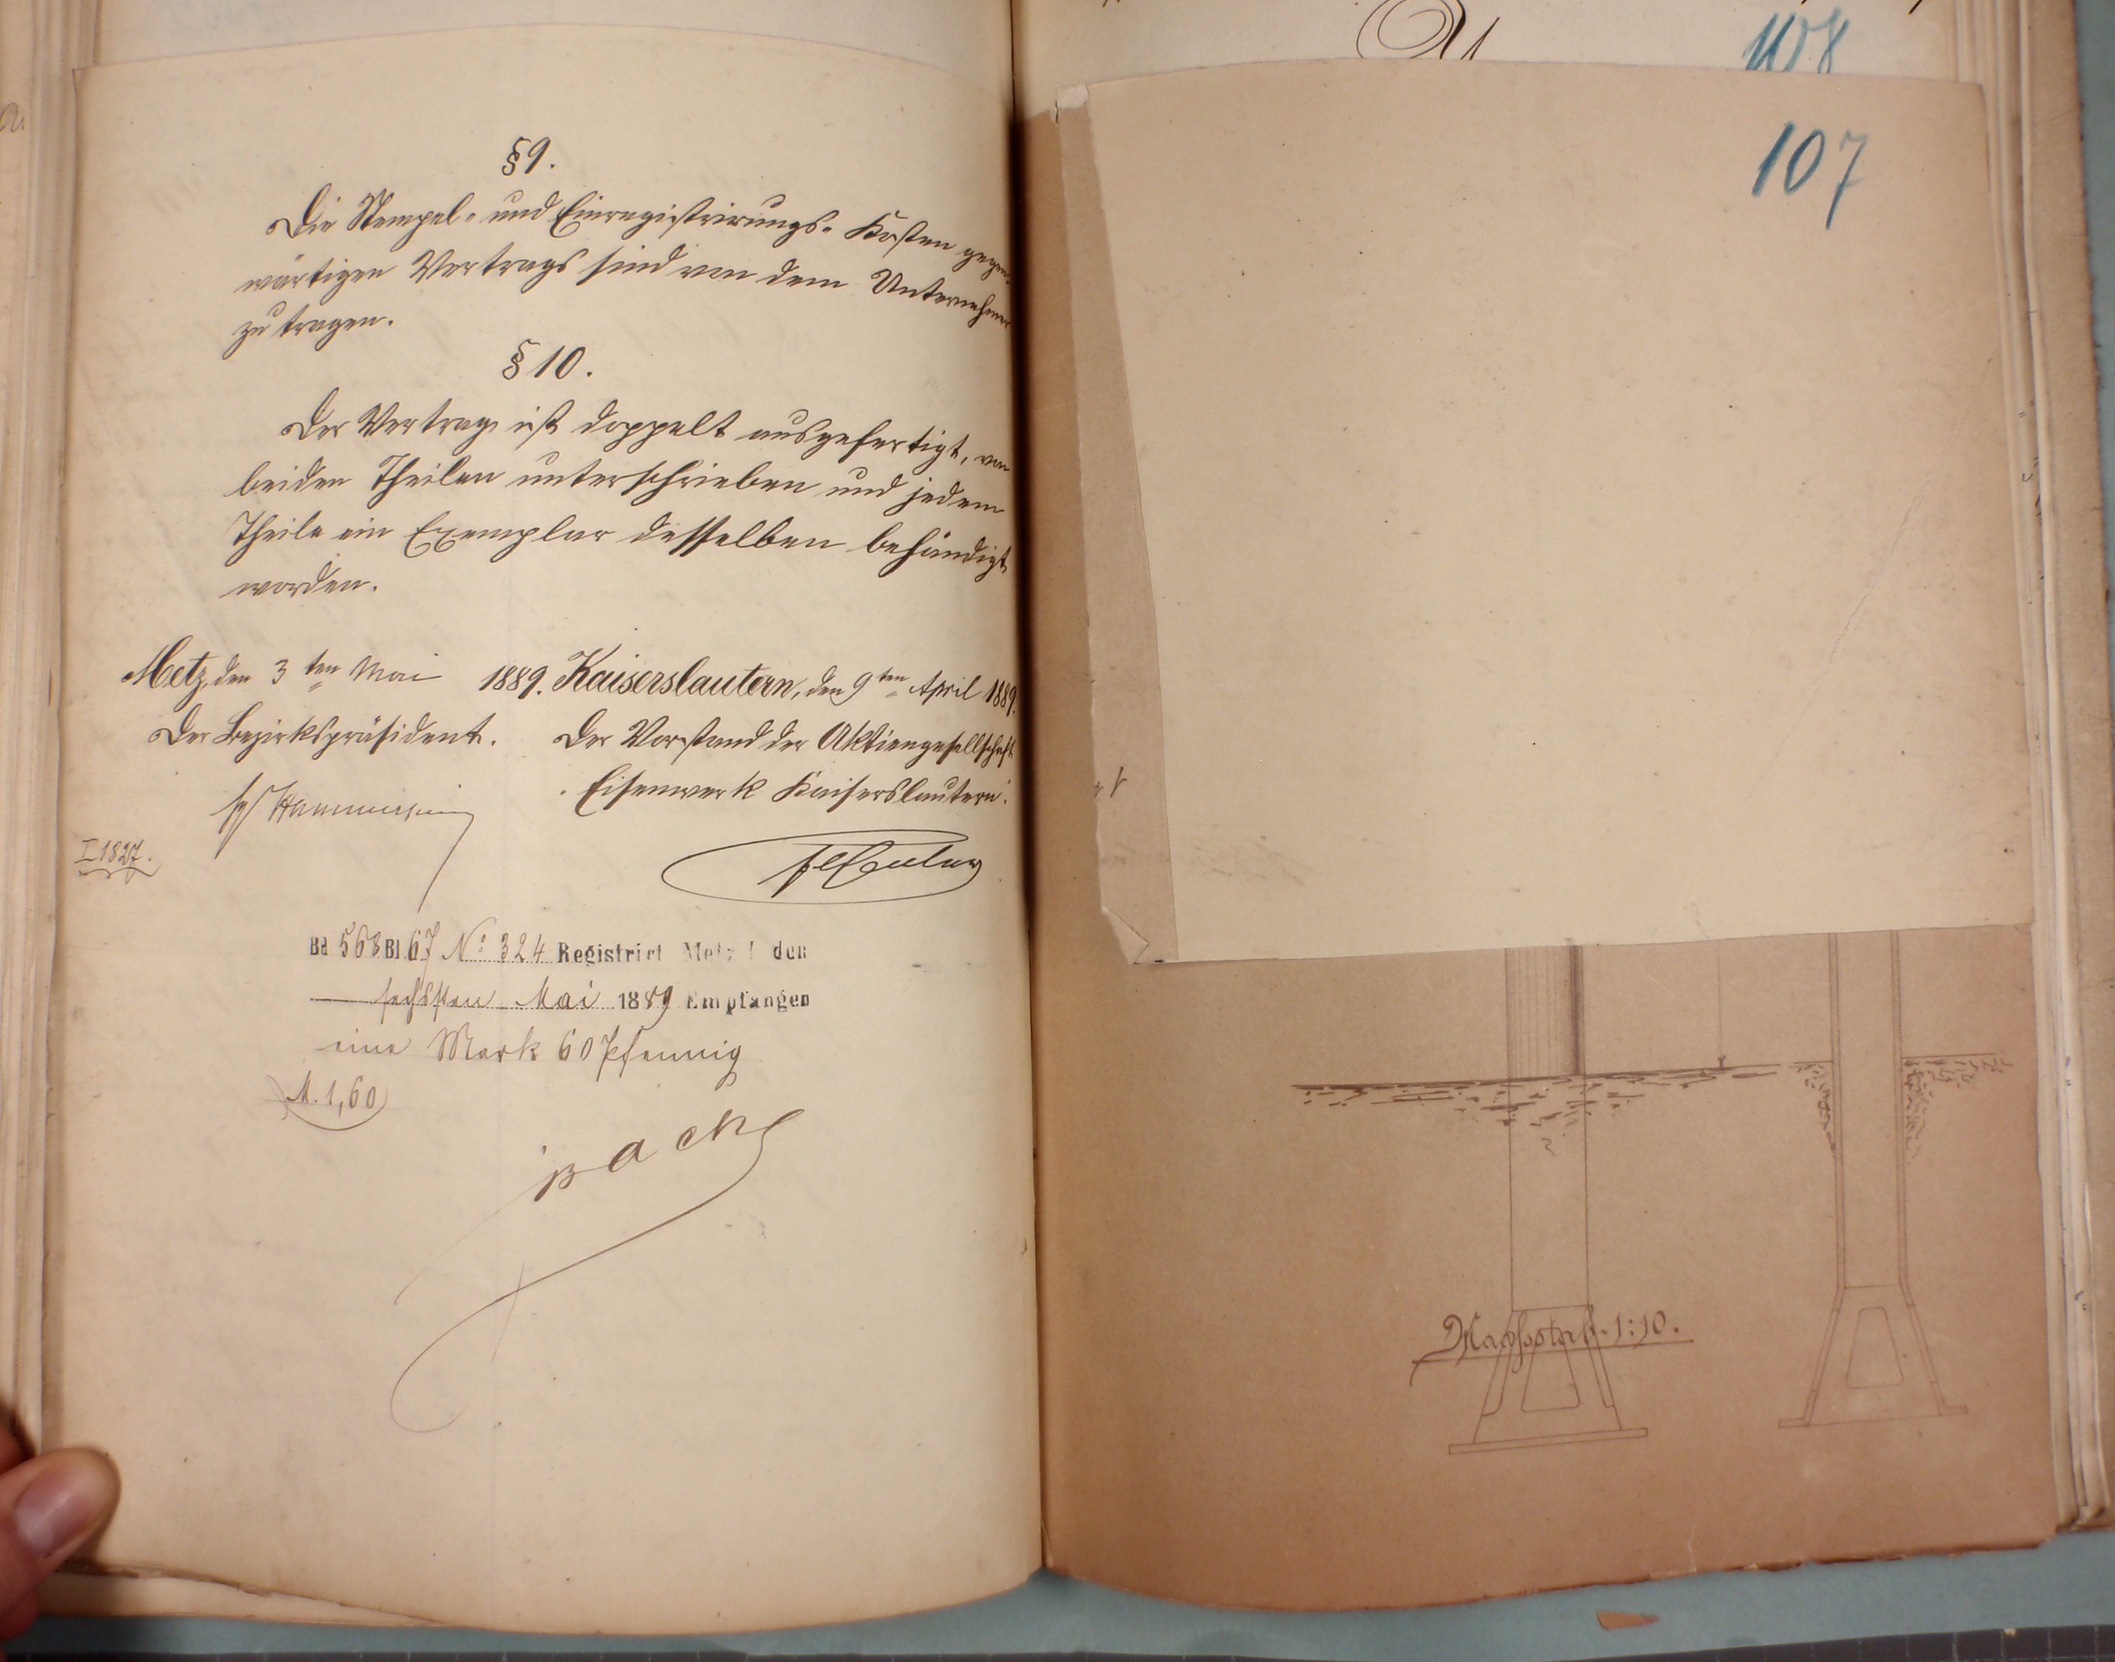 § 9.
Die Stempel- und Einregistrirungs-Kosten gegen-
wärtigen Vertrags sind von dem Unternehmer
zu tragen.
§ 10.
Der Vertrag ist doppelt ausgefertigt, von
beiden Theilen unterschrieben und jedem
Theile ein Exemplar desselben behändigt
worden.
Metz, den 3ten Mai 1889.
Der Bezirkspräsident.
Kaiserslautern, den 9ten April 1889.
Der Vorstand der Aktiengesellschaft
Eisenwerk Kaiserslautern.
I 1827.
Bd 568 Bl 67 No 324 Registrirt Metz I den
sechsten Mai 1889 Empfangen
eine Mark 60 Pfennig
M. 1,60
108
107
Maassstab 1:10.